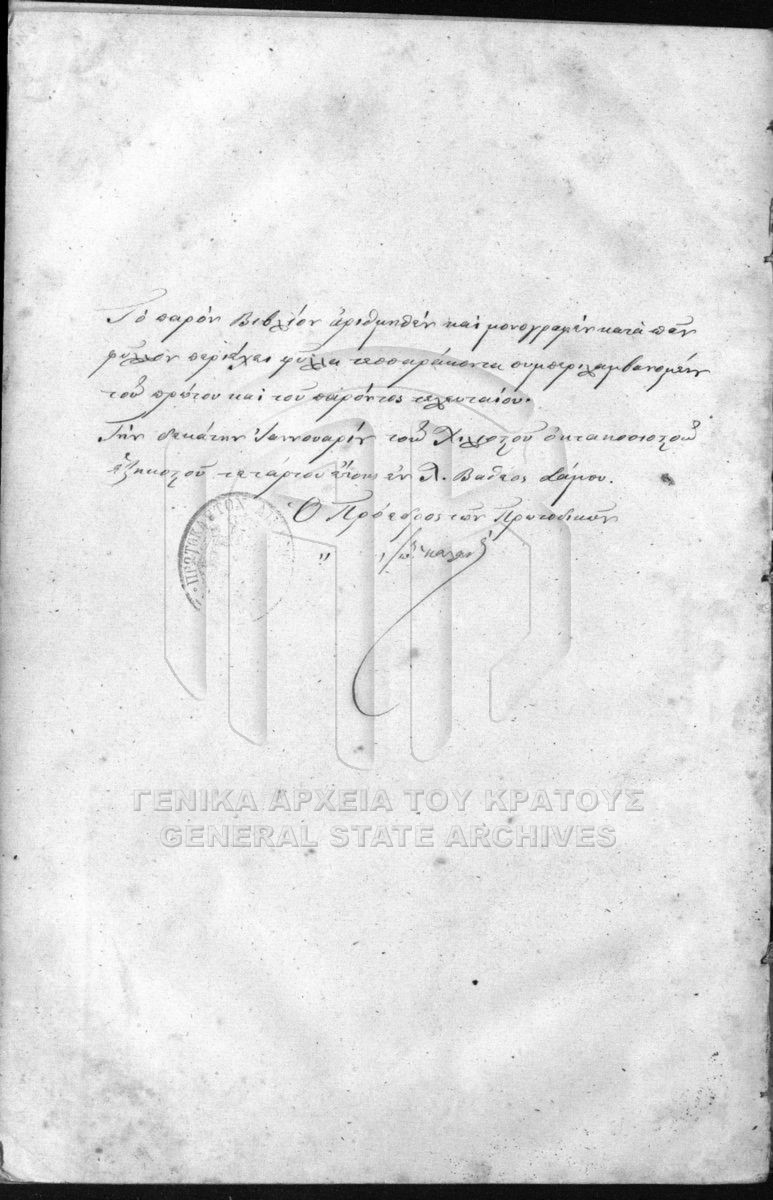 Τό παρόν Βιβλίον ἀριθμηθέν καί μονογραφέν κατά πᾶν
φύλλον περιέχει φύλλα τεσσαράκοντα συμπεριλαμβανομέν
τοῦ πρώτου καί του παρόντος τελευταίου.
Τήν δεκάτην Ἰαννουαρίου τοῦ Χιλιοστοῦ ὀκτακοσιοστοῦ
ἑξηκοστοῦ τετάρτου ἔτους ἐν Λ. Βαθεος Σάμου.
Ὁ Πρόεδρος τῶν Πρωτοδικῶν
ΠΡΩΤΟΚΛΗΤΟΝ
ΓΕΝΙΚΑ ΑΡΧΕΙΑ ΤΟΥ ΚΡΑΤΟΥΣ
GENERAL STATE ARCHIVES